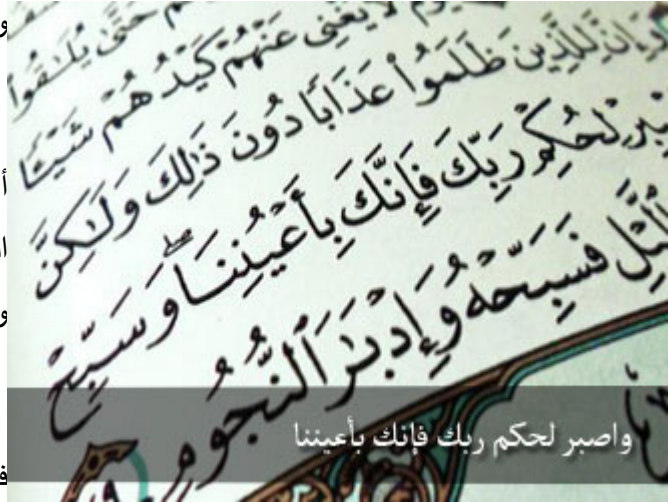 حَتَّىٰ يُلَٰقُوا۟
لَا يُغْنِى عَنْهُمْ كَيْدُهُمْ شَيْـًٔا
وَإِنَّ لِلَّذِينَ ظَلَمُوا۟ عَذَابًا دُونَ ذَٰلِكَ وَلَٰكِنَّ
لِحُكْمِ رَبِّكَ فَإِنَّكَ بِأَعْيُنِنَا ۖ وَسَبِّحْ
فَسَبِّحْهُ وَإِدْبَٰرَ ٱلنُّجُومِ
واصبر لحكم ربك فإنك بأعيننا